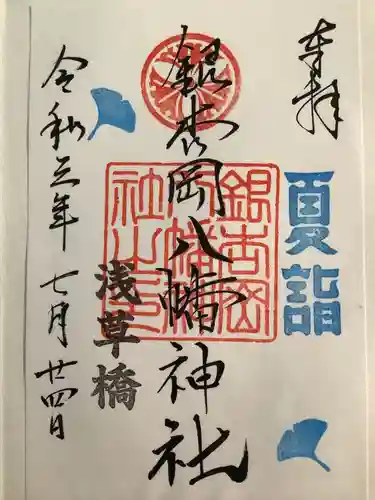 奉拝
夏詣
銀杏岡八幡神社
銀杏岡
八幡神
社之印
浅草橋
令和三年七月廿四日